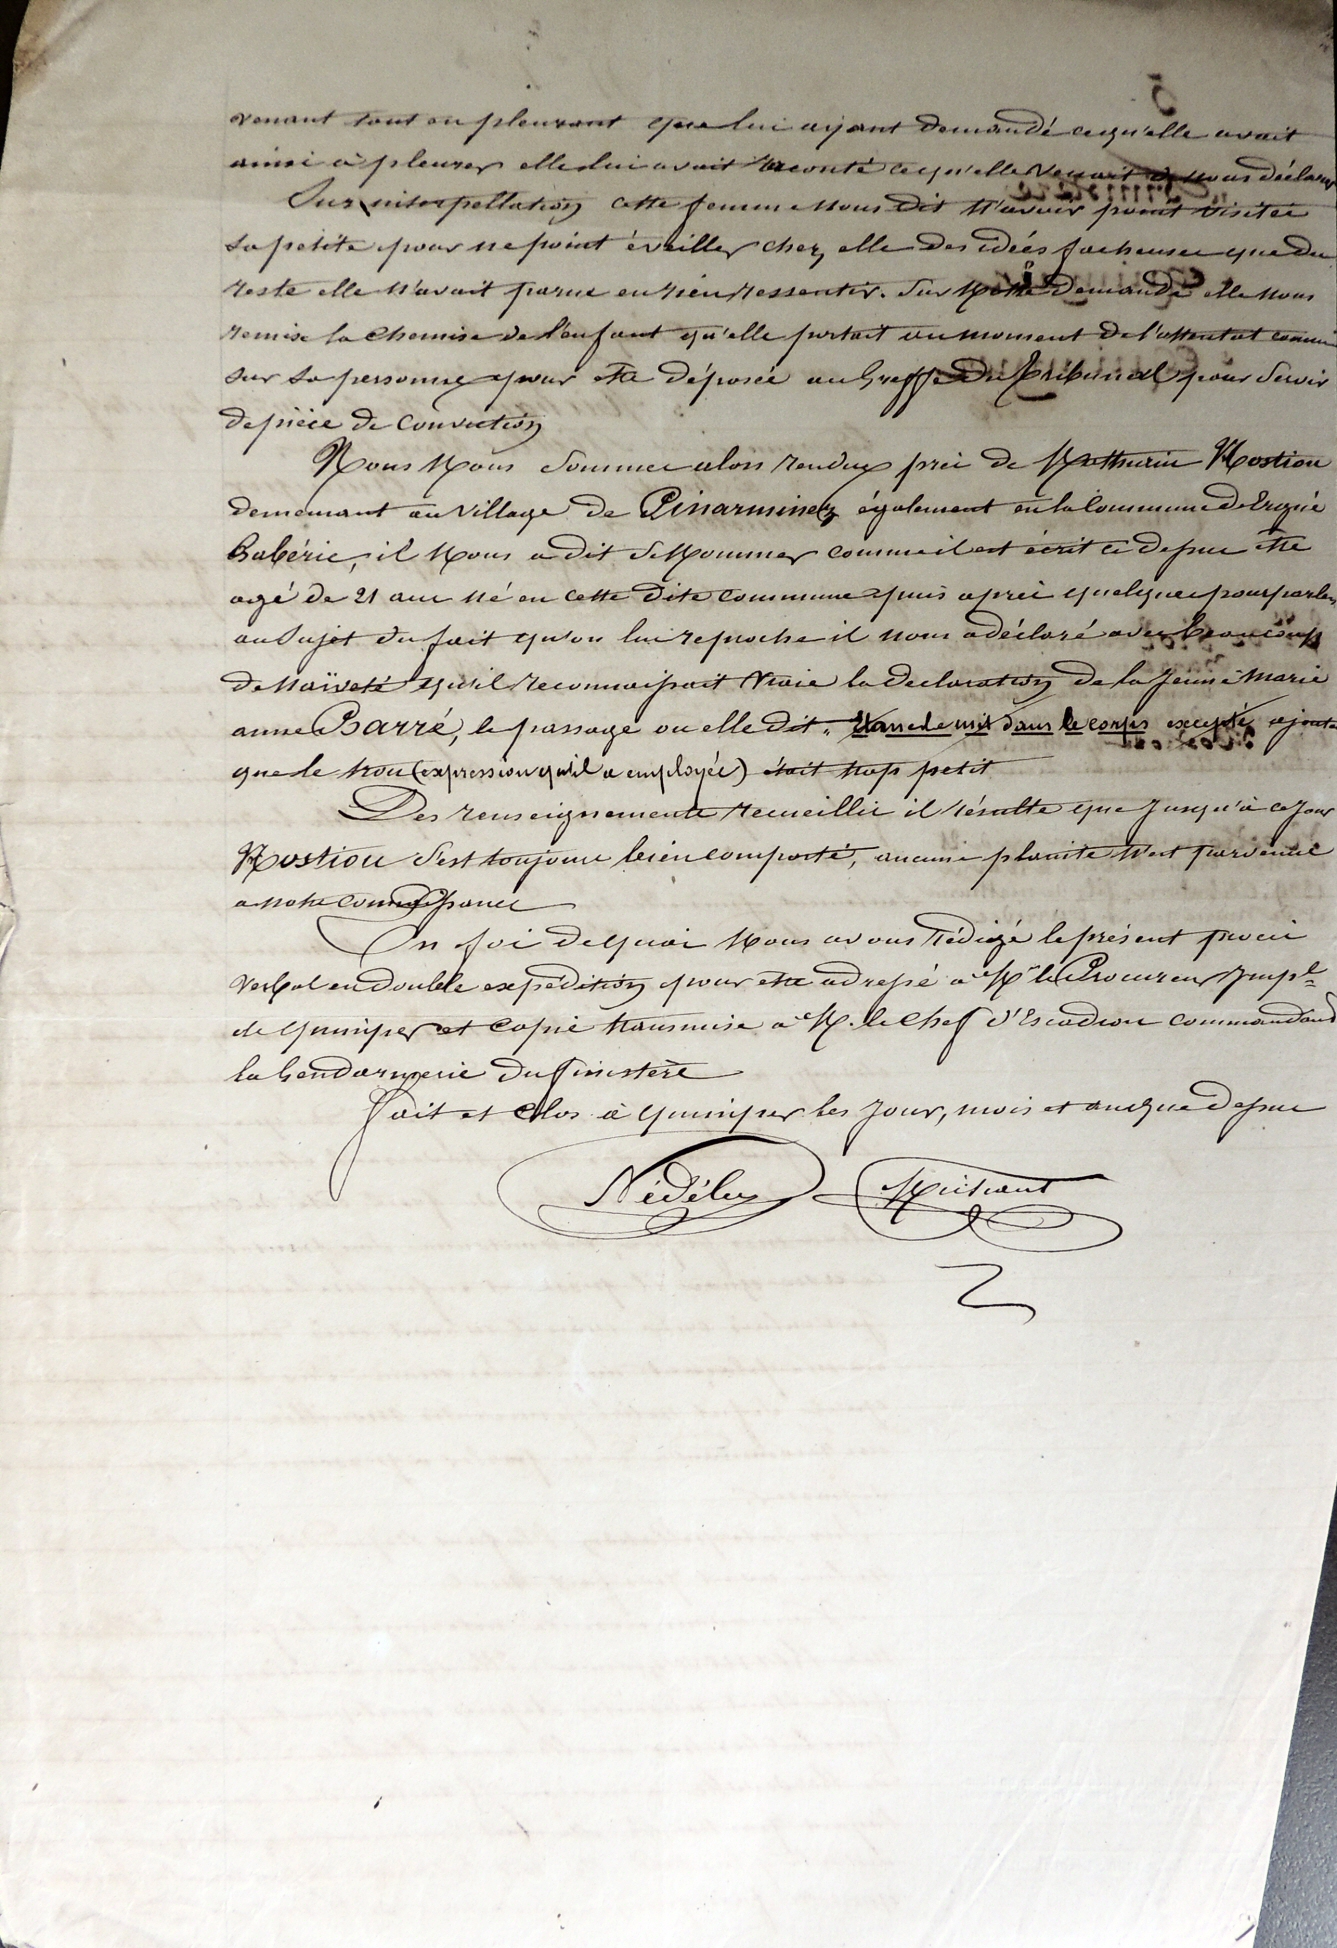 venant tout en pleurant que lui ayant demandé ce qu'elle avait
ainsi à pleurer elle lui avait raconté ce qu'elle venait de nous déclarer
Sur interpellation cette femme nous dit n'avoir point visitée
sa petite pour ne point éveiller chez elle des idées facheuses que du
reste elle n'avait parue en rien ressentir. Sur notre demande elle nous
remise la chemise de l'enfant qu'elle portait au moment de l'attentat commis
sur sa personne pour être déposée au Greffe du Tribunal pour servir
de pièce de conviction
Nous nous sommes alors rendus près de Mathurin Rostiou
demeurant au village de Pinarminez également en la commune d'Ergué
Gabéric, il nous a dit se nommer comme il est écrit ci dessus être
agé de 21 ans né en cette dite commune puis après quelques pourparlers
au sujet du fait qu'on lui reproche il nous a déclaré avec beaucoup
de naïveté qu'il reconnaissait vraie la declaration de la jeune Marie
anne Barré, le passage ou elle dit " dans le corps excepté ajoute
que le trou (expression qu'il a employée) était trop petit
Des renseignements recueillis il résulte que jusqu'à ce jour
Rostiou s'est toujours bien comporté, aucune plainte n'est parvenue
a notre connaissance
En foi de quoi nous avons rédigé le présent procès
verbal en double expédition pour être adressé à M. le Procureur Imp.l
de quimper et copie transmise à M. le Chef d'Escadron commandant
la Gendarmerie du finistère
Fait et clos à quimper les jour, mois et an que dessus
Nédélec